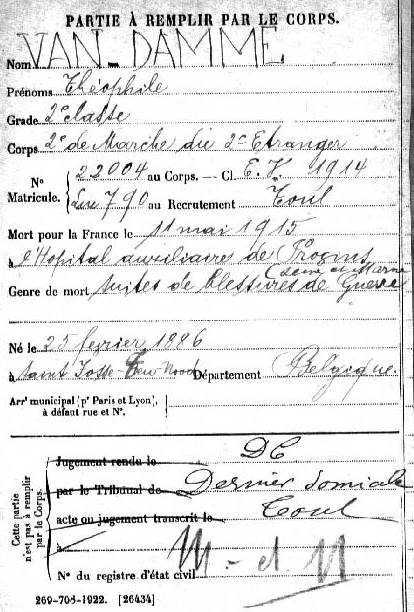 PARTIE À REMPLIR PAR LE CORPS.
Nom VAN-DAMME
Prénoms Théophile
Grade 2e classe
Corps 2e de Marche du 2e Etranger
N° Matricule. 22004 au Corps. — Cl. E.V. 1914
790 au Recrutement Toul
Mort pour la France le 11 mai 1915
à l'Hopital auxiliaires de Provins
(Seine et Marne
Genre de mort suites de blessures de Guerre
Né le 25 février 1886
à Saint Josse-Ten-Nood Département Belgique.
Arrt municipal (pr Paris et Lyon),
à défaut rue et N°.
Cette partie n'est pas à remplir par le Corps.
Jugement rendu le DC
par le Tribunal de Dernier domicile
acte ou jugement transcrit le Toul
à M-et-M
N° du registre d'état civil
269-708-1922. [26434]